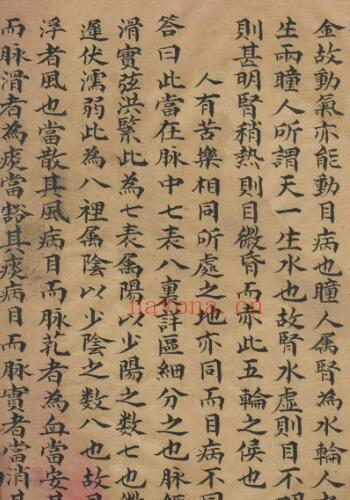 金故動氣亦能動目病也瞳人属腎為水輪人
生兩瞳人所謂天一生水也故腎水虚則目不
則甚明腎稍熱則目微昏而赤此五輪之候也
人有苦樂相同所處之地亦同而目病不
答曰此當在脉中七表八裏詳區細分之也脉
滑實弦洪緊此為七表属陽以少陽之數七也微
遲伏濡弱此為八裡属陰以少陰之數八也故
浮者風也當散其風病目而脉芤者為血當安其
而脉滑者為痰當豁其痰病目而脉實者當消其
nayona.cn